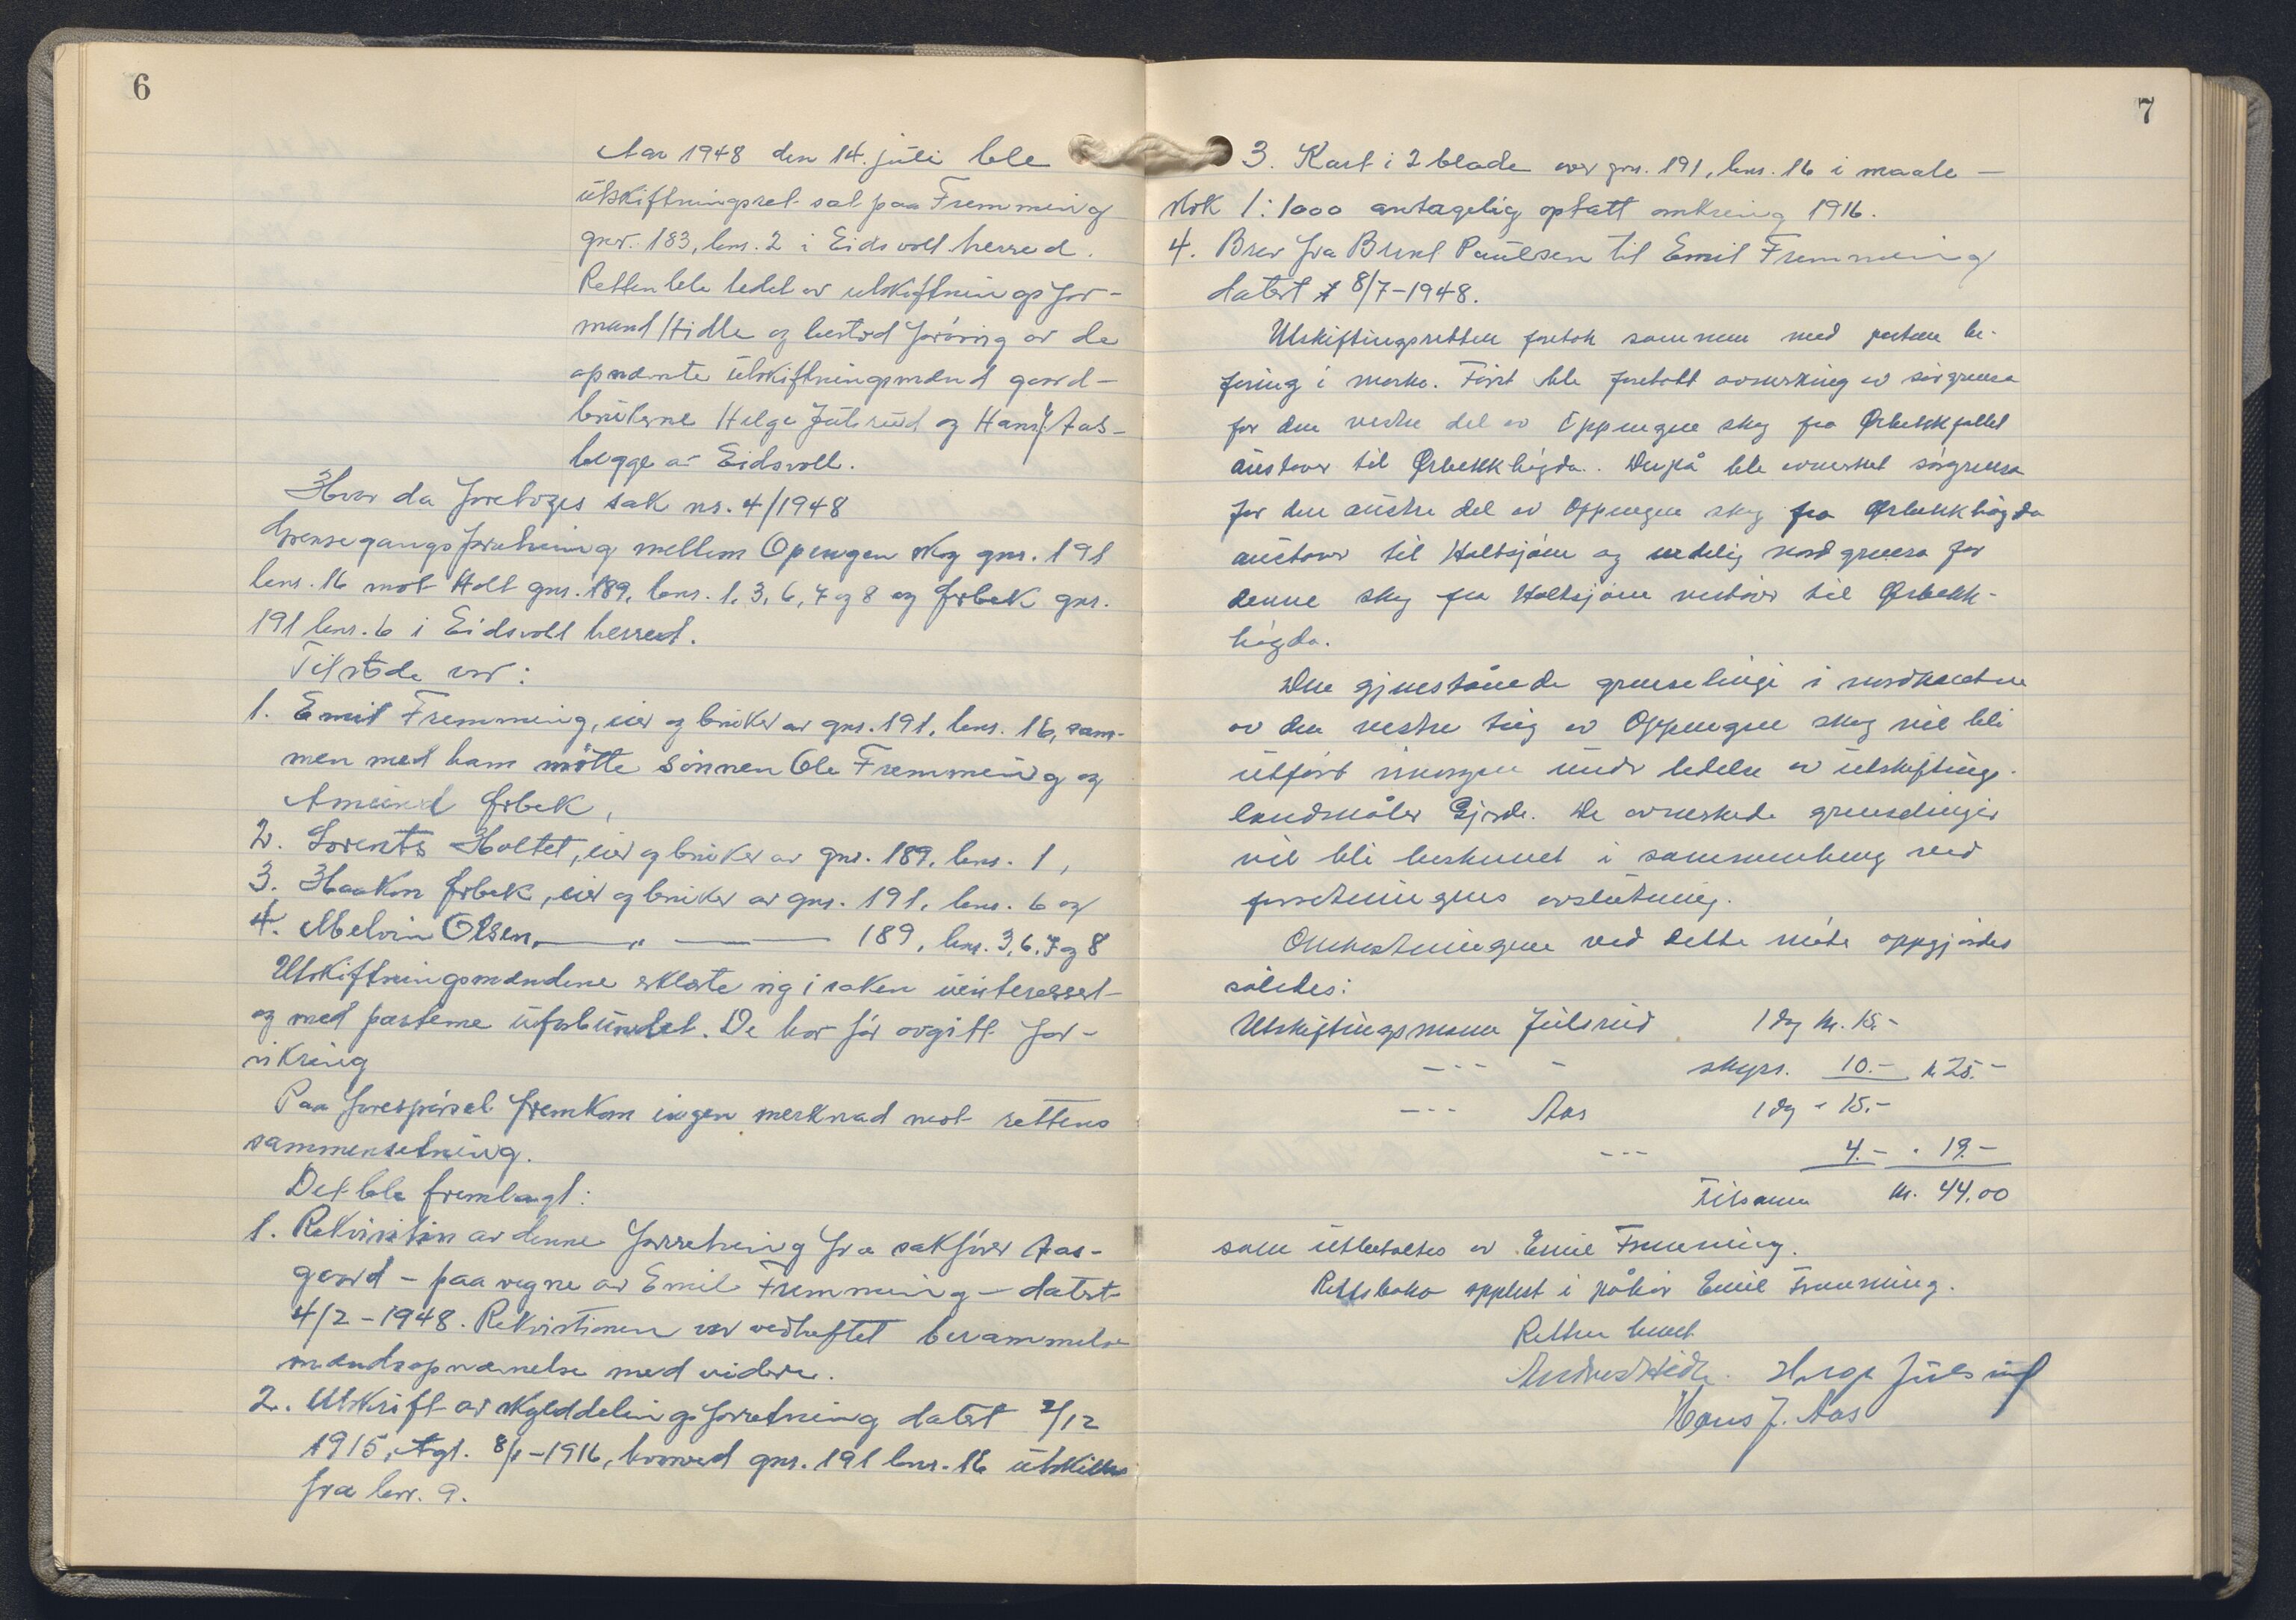 6
Aar 1948 den 14. juli ble
utskiftningsret sat paa Fremming
gnr. 183, bnr. 2 i Eidsvoll herred.
Retten ble ledet av utskiftningsfor-
mand Hidle og bestod forøvrig av de
opnævnte utskiftningsmænd gaard-
brukerne Helge Julsrud og Hans J. Aas -
begge av Eidsvoll.
Hvor da foretoges sak nr. 4/1948
Grensegangsforretning mellem Opengen skog gnr. 191
bnr. 16 mot Holt gnr. 189, bnr. 1, 3, 6, 7 og 8 og Ørbek gnr.
191 bnr. 6 i Eidsvoll herred.
Tilstede var:
1. Emil Fremming, eier og bruker av gnr. 191, bnr. 16, sam-
men med ham møtte sønnen Ole Fremming og
Amund Ørbek,
2. Lorents Holtet, eier og bruker av gnr. 189, bnr. 1,
3. Haakon Ørbek, eier og bruker av gnr. 191, bnr. 6 og
4. Melvin Olsen, — " — 189, bnr. 3, 6, 7 og 8
Utskiftningsmændene erklærte sig i saken uinteressert
og med parterne uforbundet. De har før avgitt for-
sikring
Paa forespørsel fremkom ingen merknad mot rettens
sammensetning.
Det ble fremlagt:
1. Rekvisition av denne forretning fra sakfører Aas-
gaard - paa vegne av Emil Fremming - datert
4/2 - 1948. Rekvisitionen var vedheftet berammelse
mandsopnævnelse med videre.
2. Utskrift av skylddelingsforretning datert 2/12
1915, tgl. 8/1 - 1916, hvorved gnr. 191 bnr. 16 utskiltes
fra bnr. 9.
7
3. Kart i 2 blade over gnr. 191, bnr. 16 i maale-
stok 1:1000 antagelig optatt omkring 1916.
4. Brev fra Paulsen til Emil Fremming
datert 8/7 - 1948.
Utskiftingsretten foretok sammen med partene be-
faring i marka. Først ble foretatt avmerking av sørgrensa
for den vestre del av Oppengen skog fra Ørbekkfallet
austover til Ørbekkhøgda. Derpå ble avmerket sørgrensa
for den austre del av Oppengen skog fra Ørbekkhøgda
austover til Holtsjøen og endelig nordgrensa for
denne skog fra Holtsjøen vestover til Ørbekk-
høgda.
Den gjenstående grenselinje i nordkanten
av den vestre teig av Oppengen skog vil bli
utført imorgen under ledelse av utskiftings-
landmåler Gjerde. De avmerkede grenselinjer
vil bli beskrevet i sammenheng ved
forretningens avslutning.
Omkostningene ved dette møte oppgjordes
således:
Utskiftingsmann Julsrud 1 dag kr. 15.-
--- - skyss. 10.- kr 25.-
--- Aas 1 dg - 15.-
--- 4.- - 19.-
Tilsamen kr. 44.00
som utbetaltes av Emil Fremming.
Rettsboka opplest i påhør Emil Fremming.
Retten hevet
Andreas Hidle. Helge Julsrud
Hans J. Aas